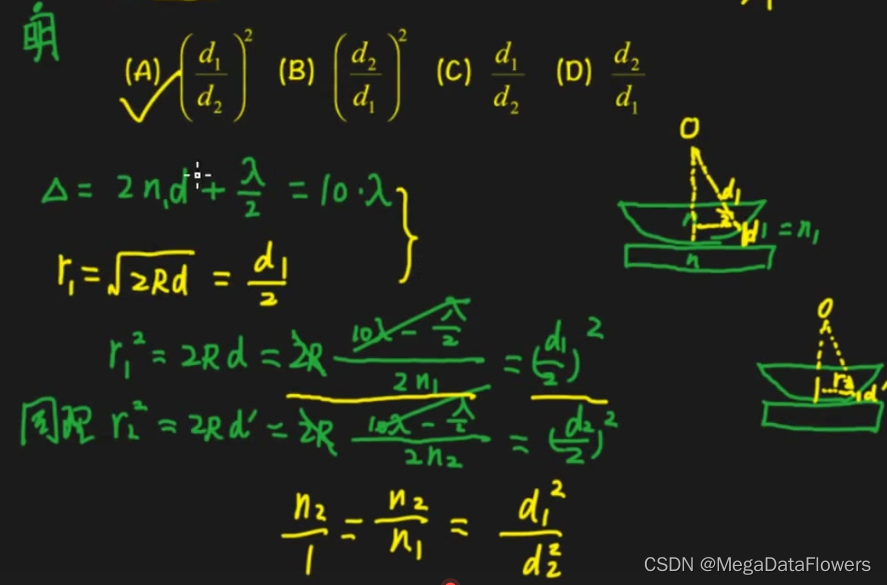 明
(A) (d₁/d₂)² (B) (d₂/d₁)² (C) d₁/d₂ (D) d₂/d₁
O
Δ = 2n₁d + λ/2 = 10·λ
d₁/2
d = n₁
n
r₁ = √2Rd = d₁/2
O
r₁² = 2Rd = 2R (10λ - λ/2)/(2n₁) = (d₁/2)²
r₂
d'
同理 r₂² = 2Rd' = 2R (10λ - λ/2)/(2n₂) = (d₂/2)²
n₂/1 = n₂/n₁ = d₁²/d₂²
CSDN @MegaDataFlowers